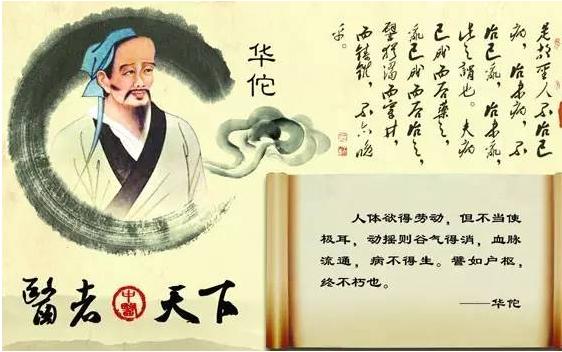 华佗
是故聖人不治已
病，治未病，不
治已亂，治未亂，
此之謂也。夫病
已成而后藥之，
亂已成而后治之，
譬猶渴而穿井，
而鑄錐，不亦晚
乎。
人体欲得劳动，但不当使
极耳，动摇则谷气得消，血脉
流通，病不得生。譬如户枢，
终不朽也。
——华佗
醫者中醫天下